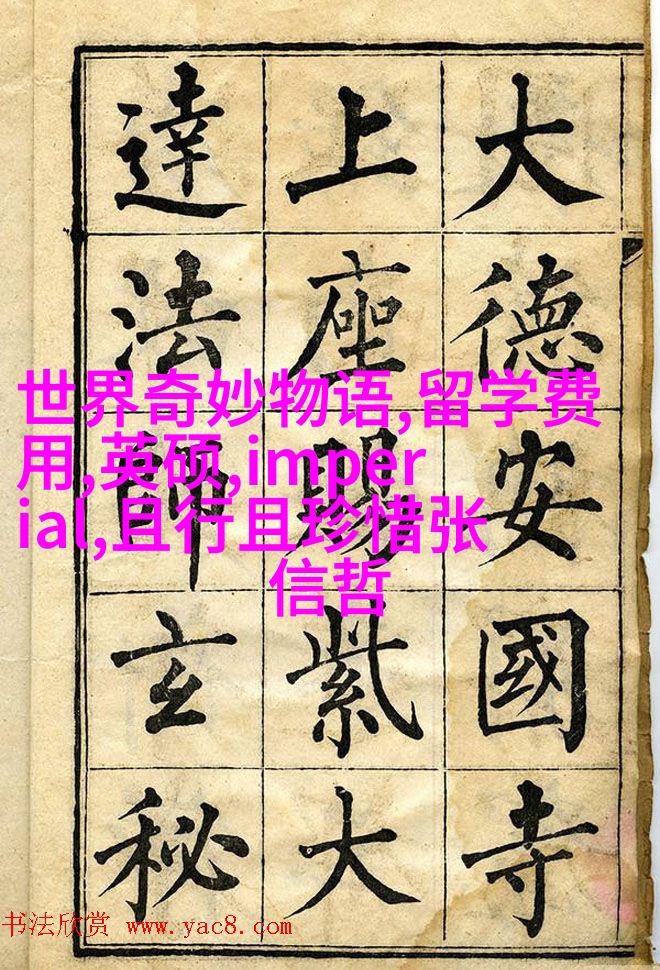 大德安國寺
上座賜紫大
達法師玄秘
世界奇妙物语,留学费
用,英硕,imper
ial,且行且珍惜张
信哲
书法欣赏 www.yac8.com